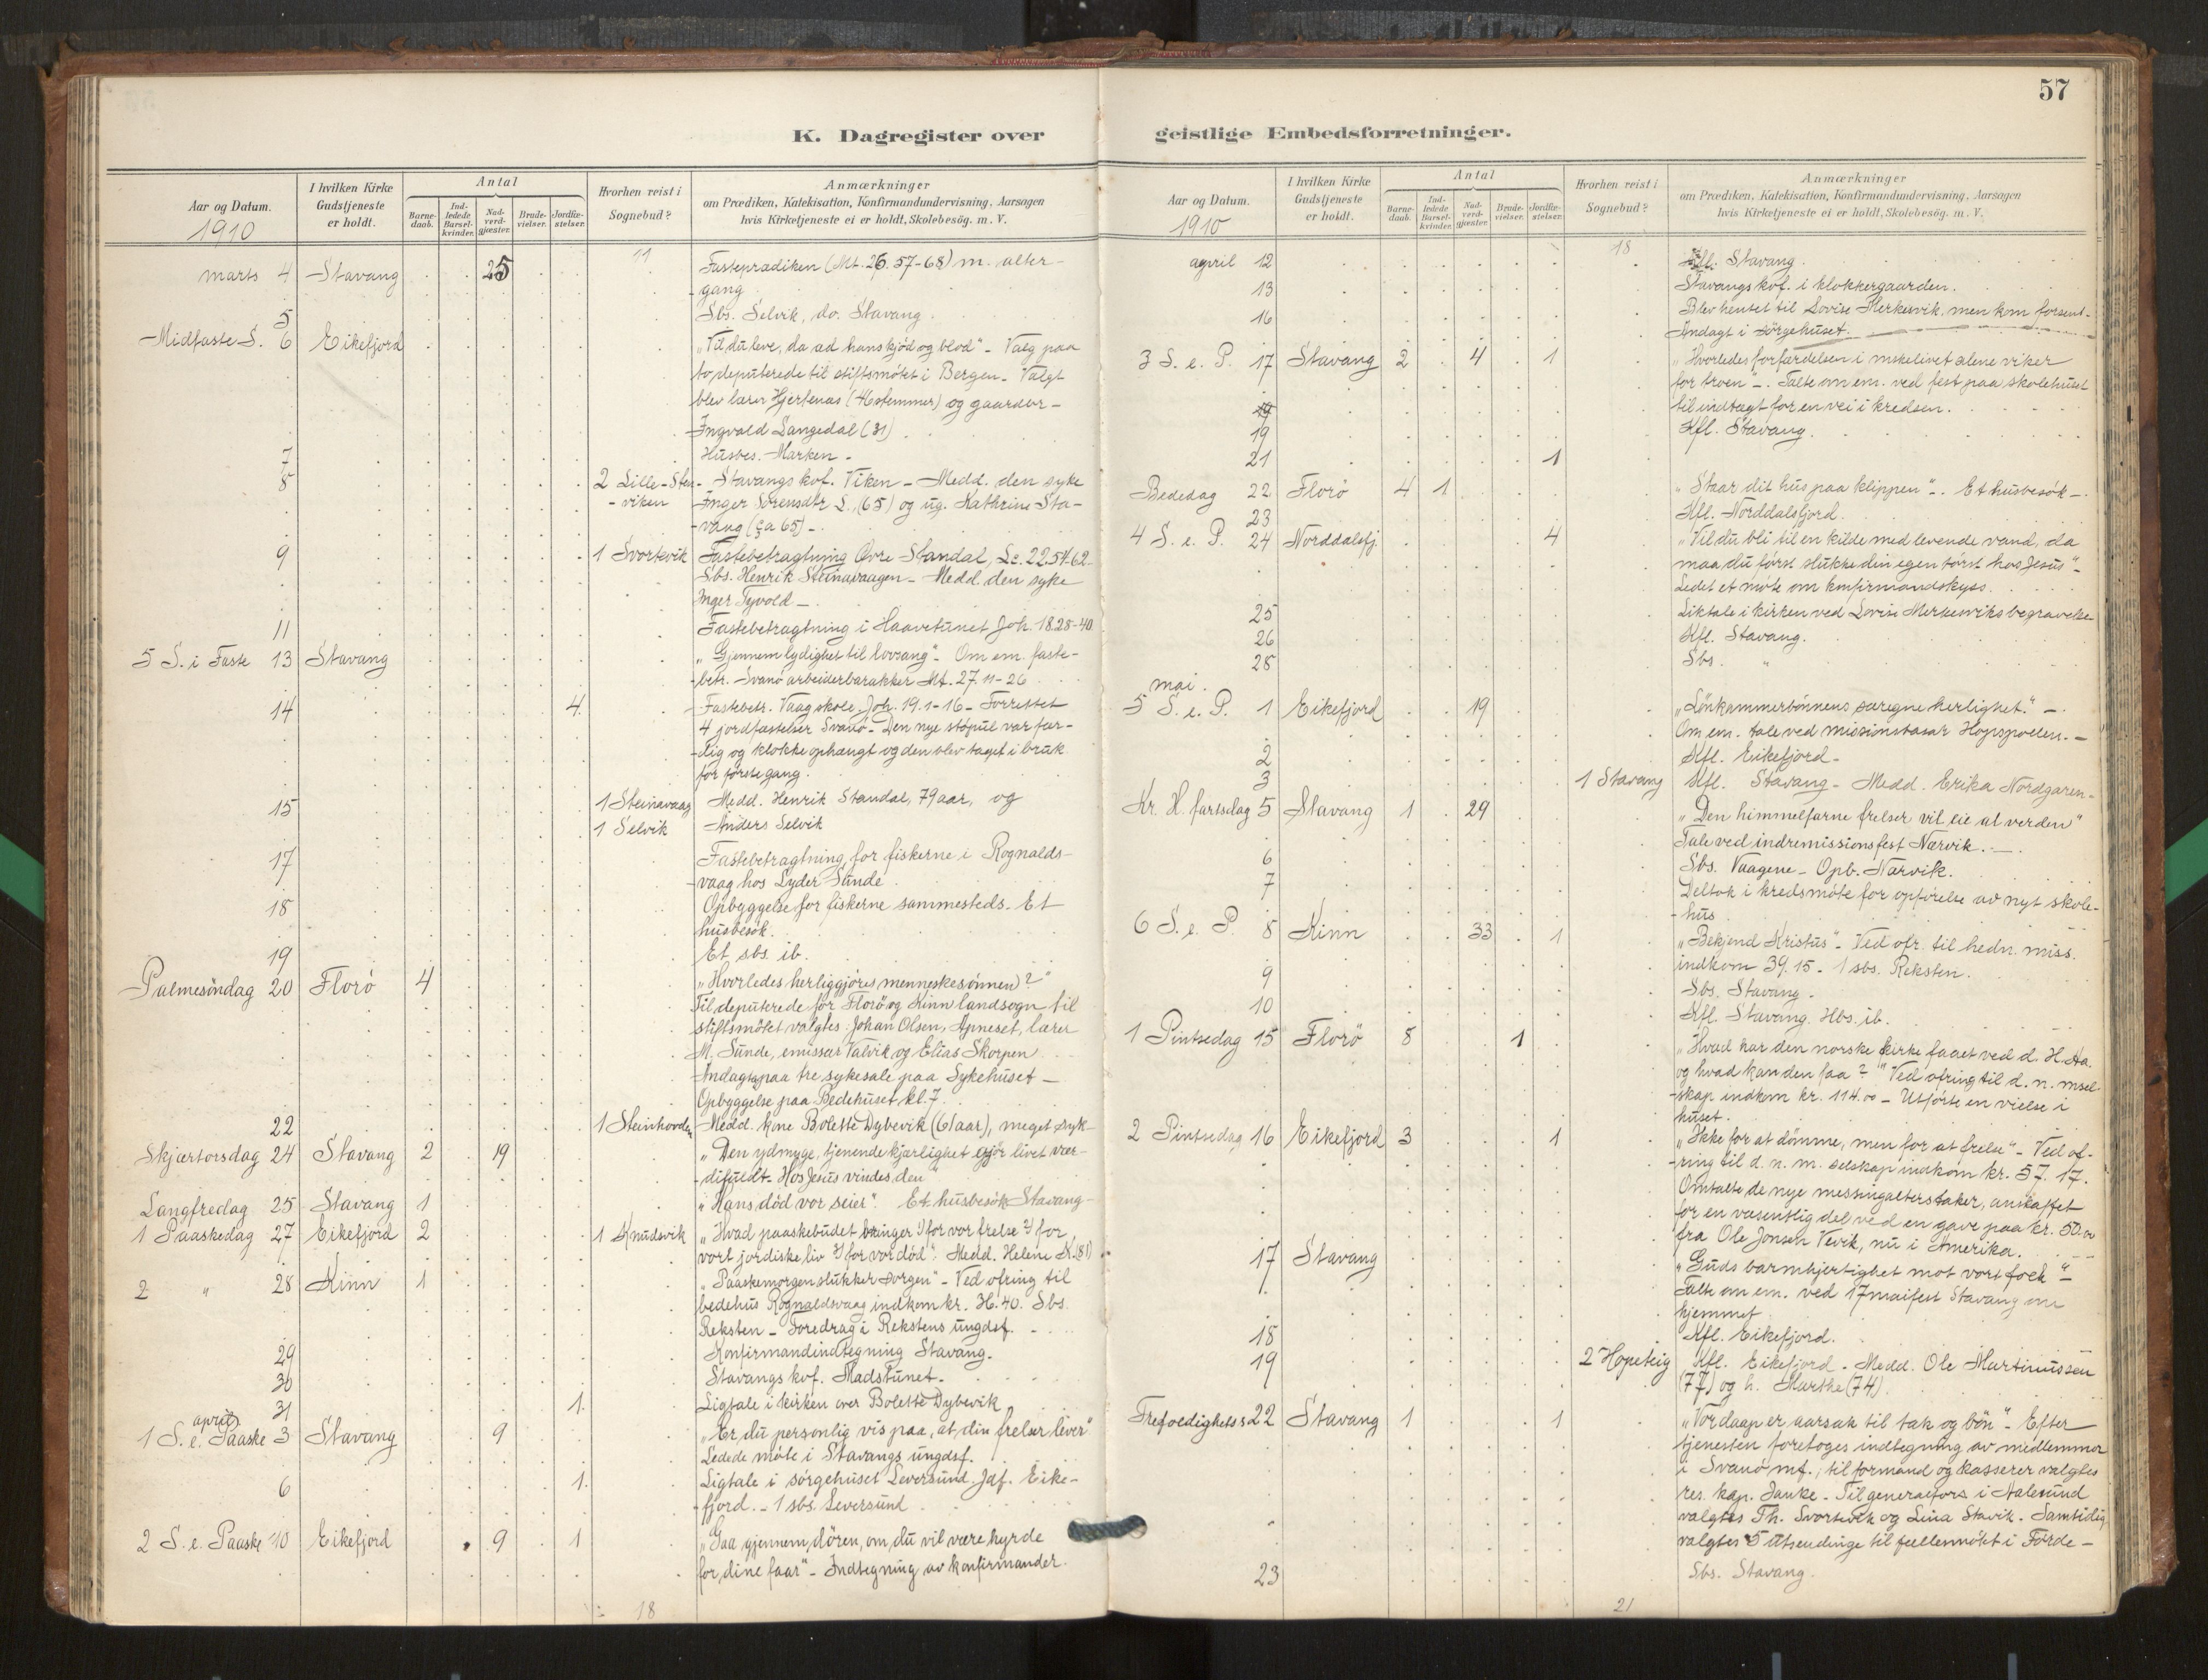 57
K. Dagregister over geistlige Embedsforretninger.
Aar og Datum. I hvilken Kirke Gudstjeneste er holdt. Antal Barnedaab. Indledede Barselkvinder. Nadverdgjæster. Brudevielser. Jordfæstelser. Hvorhen reist i Sognebud? Anmærkninger om Prædiken, Katekisation, Konfirmandundervisning, Aarsagen hvis Kirketjeneste ei er holdt, Skolebesög. m. V.
1910
11
marts 4 Stavang 25 Fasteprædiken (Mt. 26. 57-68) m. alter-
gang
5 Sbs. Selvik, do. Stavang.
Midfaste S. 6 Eikefjord "Vil du leve, da æd hans kjöd og blod" - Valg paa
to deputerede til stiftsmötet i Bergen. Valgt
blev lærer Hjertenæs (46 stemmer) og gaardbr-
Ingvald Langedal (31).
7 Husbes. Marken -
8 2 Lille-Sten- Stavangs kvf. Viken - Medd. den syke
-viken Inger Sörensdtr L. (65) og ug. Kathrine Sta-
-vang (ca 65) -
9 1 Svortevik Fastebetragtning Övre Standal, Lc. 22.54-62-
Sbs. Henrik Steinavaagen - Medd. den syke
Inger Tyvold -
11 Fastebetragtning i Haavetunet Joh. 18.28-40
5 S. i Faste 13 Stavang "Gjennem lydighet til lovsang" - Om em. faste-
betr. Svanö arbeiderbarakker Mt. 27. 11-26
14 4. Fastebetr. Vaag skole, Joh. 19. 1-16 - Forrettet
4 jordfæstelser Svanö - Den nye stöpul var fær-
-dig og klokke ophængt og den blev taget i bruk
for förste gang.
15 1 Steinavaag Medd. Henrik Standal, 79 aar, og
1 Selvik Anders Selvik
17 Fastebetragtning for fiskerne i Rognalds-
-vaag hos Lyder Sunde
18 Opbyggelse for fiskerne sammesteds. Et
husbesök.
19 Et sbs. ib.
Palmesöndag 20 Florö 4 "Hvorledes herliggjöres menneskesönnen?"
Til deputerede for Florö og Kinn landsogn til
stiftsmötet valgtes: Johan Olsen, Apneset, lærer
M. Sunde, emissær Valvik og Elias Skorpen
Andagt paa tre sykesale paa Sykehuset -
Opbyggelse paa Bedehuset kl. 7.
22 1 Steinhovden Medd. kone Bolette Dybevik (61 aar), meget syk-
Skjærtorsdag 24 Stavang 2 19 "Den ydmyge, tjenende kjærlighet gjör livet vær-
-difuldt. Hos Jesus vindes den"
Langfredag 25 Stavang 1 "Hans död vor seier". Et husbesök Stavang-
1 Paaskedag 27 Eikefjord 2 1 Knudsvik "Hvad paaskebudet bringer 1) for vor frelse 2) for
vort jordiske liv 3) for vor död". Medd. Helene K. (81)
2 " 28 Kinn 1 "Paaskemorgen slukker sorgen" - Ved ofring til
bedehus Rognaldsvaag indkom kr. 36. 40. Sbs.
Reksten - Foredrag i Rekstens ungdsf.
29 Konfirmandindtegning Stavang.
30 Stavangs kvf. Madstunet.
31 1. Ligtale i kirken over Bolette Dybevik
april
1 S. e. Paaske 3 Stavang 9 "Er du personlig vis paa, at din frelser lever"
Ledede möte i Stavangs ungdsf.
6 1. Ligtale i sörgehuset Leversund. Jdf. Eike-
fjord. - 1 sbs. Leversund
2 S. e. Paaske 10 Eikefjord 9 1 "Gaa gjennem dören, om du vil være hyrde
for dine faar" - Indtegning av konfirmander.
18
Aar og Datum. I hvilken Kirke Gudstjeneste er holdt. Antal Barnedaab. Indledede Barselkvinder. Nadverdgjæster. Brudevielser. Jordfæstelser. Hvorhen reist i Sognebud? Anmærkninger om Prædiken, Katekisation, Konfirmandundervisning, Aarsagen hvis Kirketjeneste ei er holdt, Skolebesög. m. V.
1910
18
april 12 Kfl. Stavang.
13 Stavangs kvf. i klokkergaarden.
16 Blev hentet til Lovise Merkesvik, men kom forsent.
Andagt i sörgehuset.
3 S. e. P. 17 Stavang 2 4 1 "Hvorledes forfærdelsen i mskelivet alene viker
for troen" -. Talte om em. ved fest paa skolehuset
til indtægt for en vei i kredsen.
19
19 Kfl. Stavang.
21 1
Bededag 22 Florö 4 1 "Staar dit hus paa klippen" -. Et husbesök -
23 Kfl. Norddalsfjord.
4 S. e. P. 24 Norddalsfj. 4 "Vil du bli til en kilde med levende vand, da
maa du först slukke din egen törst hos Jesus" -
Ledet et möte om konfirmandskyss.
25 Liktale i kirken ved Lovise Merkesviks begravelse
26 Kfl. Stavang.
28 Sbs. "
mai.
5 S. e. P. 1 Eikefjord 19 "Lönkammerbönnens særegne herlighet." -
Om em. tale ved missionsbasar Hopspollen. -
2 Kfl. Eikefjord -
3 1 Stavang Kfl. Stavang - Medd. Erika Nordgaren-
Kr. H. fartsdag 5 Stavang 1 29 "Den himmelfarne frelser vil eie al verden"
Tale ved indremissionsfest Nærvik. -
6 Sbs. Vaagene - Opb. Nærvik.
7 Deltok i kredsmöte for opförelse av nyt skole-
-hus
6 S. e. P. 8 Kinn 33 1 "Bekjend Kristus" - Ved ofr. til hedn. miss.
indkom 39. 15. - 1 sbs. Reksten.
9 Sbs. Stavang.
10 Kfl. Stavang. Hbs. ib.
1 Pintsedag 15 Florö 8 1 "Hvad har den norske kirke faaet ved d. H. Aa.
og hvad kan den faa?" Ved ofring til d. n. msel-
-skap indkom kr. 114.00 - Utförte en vielse i
huset.
2 Pintsedag 16 Eikefjord 3 1 "Ikke for at dömme, men for at frelse" - Ved of-
-ring til d. n. m. selskap indkom kr. 57. 17.
Omtalte de nye messingalterstaker, anskaffet
for en væsentlig del ved en gave paa kr. 50.00
fra Ole Jonsen Vevik, nu i Amerika.
17 Stavang "Guds barmhjertighet mot vort folk" -
Talte om em. ved 17 maifest Stavang om
hjemmet
18 Kfl. Eikefjord.
19 2 Hopeteig Kfl. Eikefjord. Medd. Ole Martinussen
(77) og h. Marthe (74).
Trefoldighetss 22 Stavang 1 1 "Vor daap er aarsak til tak og bön" - Efter
tjenesten foretoges indtegning av medlemmer
i Svanö mf.; til formand og kasserer valgtes
res. kap. Janke. - Til generalfors i Aalesund
valgtes Th. Svortevik og Lina Stavik. Samtidig
valgtes 5 utsendinge til fællesmötet i Förde -
23 Sbs. Stavang.
21